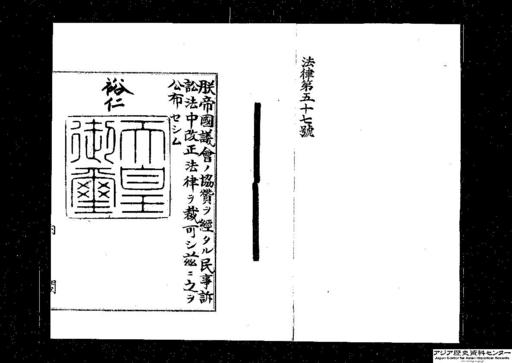 法律第五十七號
朕帝國議會ノ協贊ヲ經タル民事訴
訟法中改正法律ヲ裁可シ茲ニ之ヲ
公布セシム
裕仁
天皇
御璽
内 閣
アジア歴史資料センター
Japan Center for Asian Historical Records